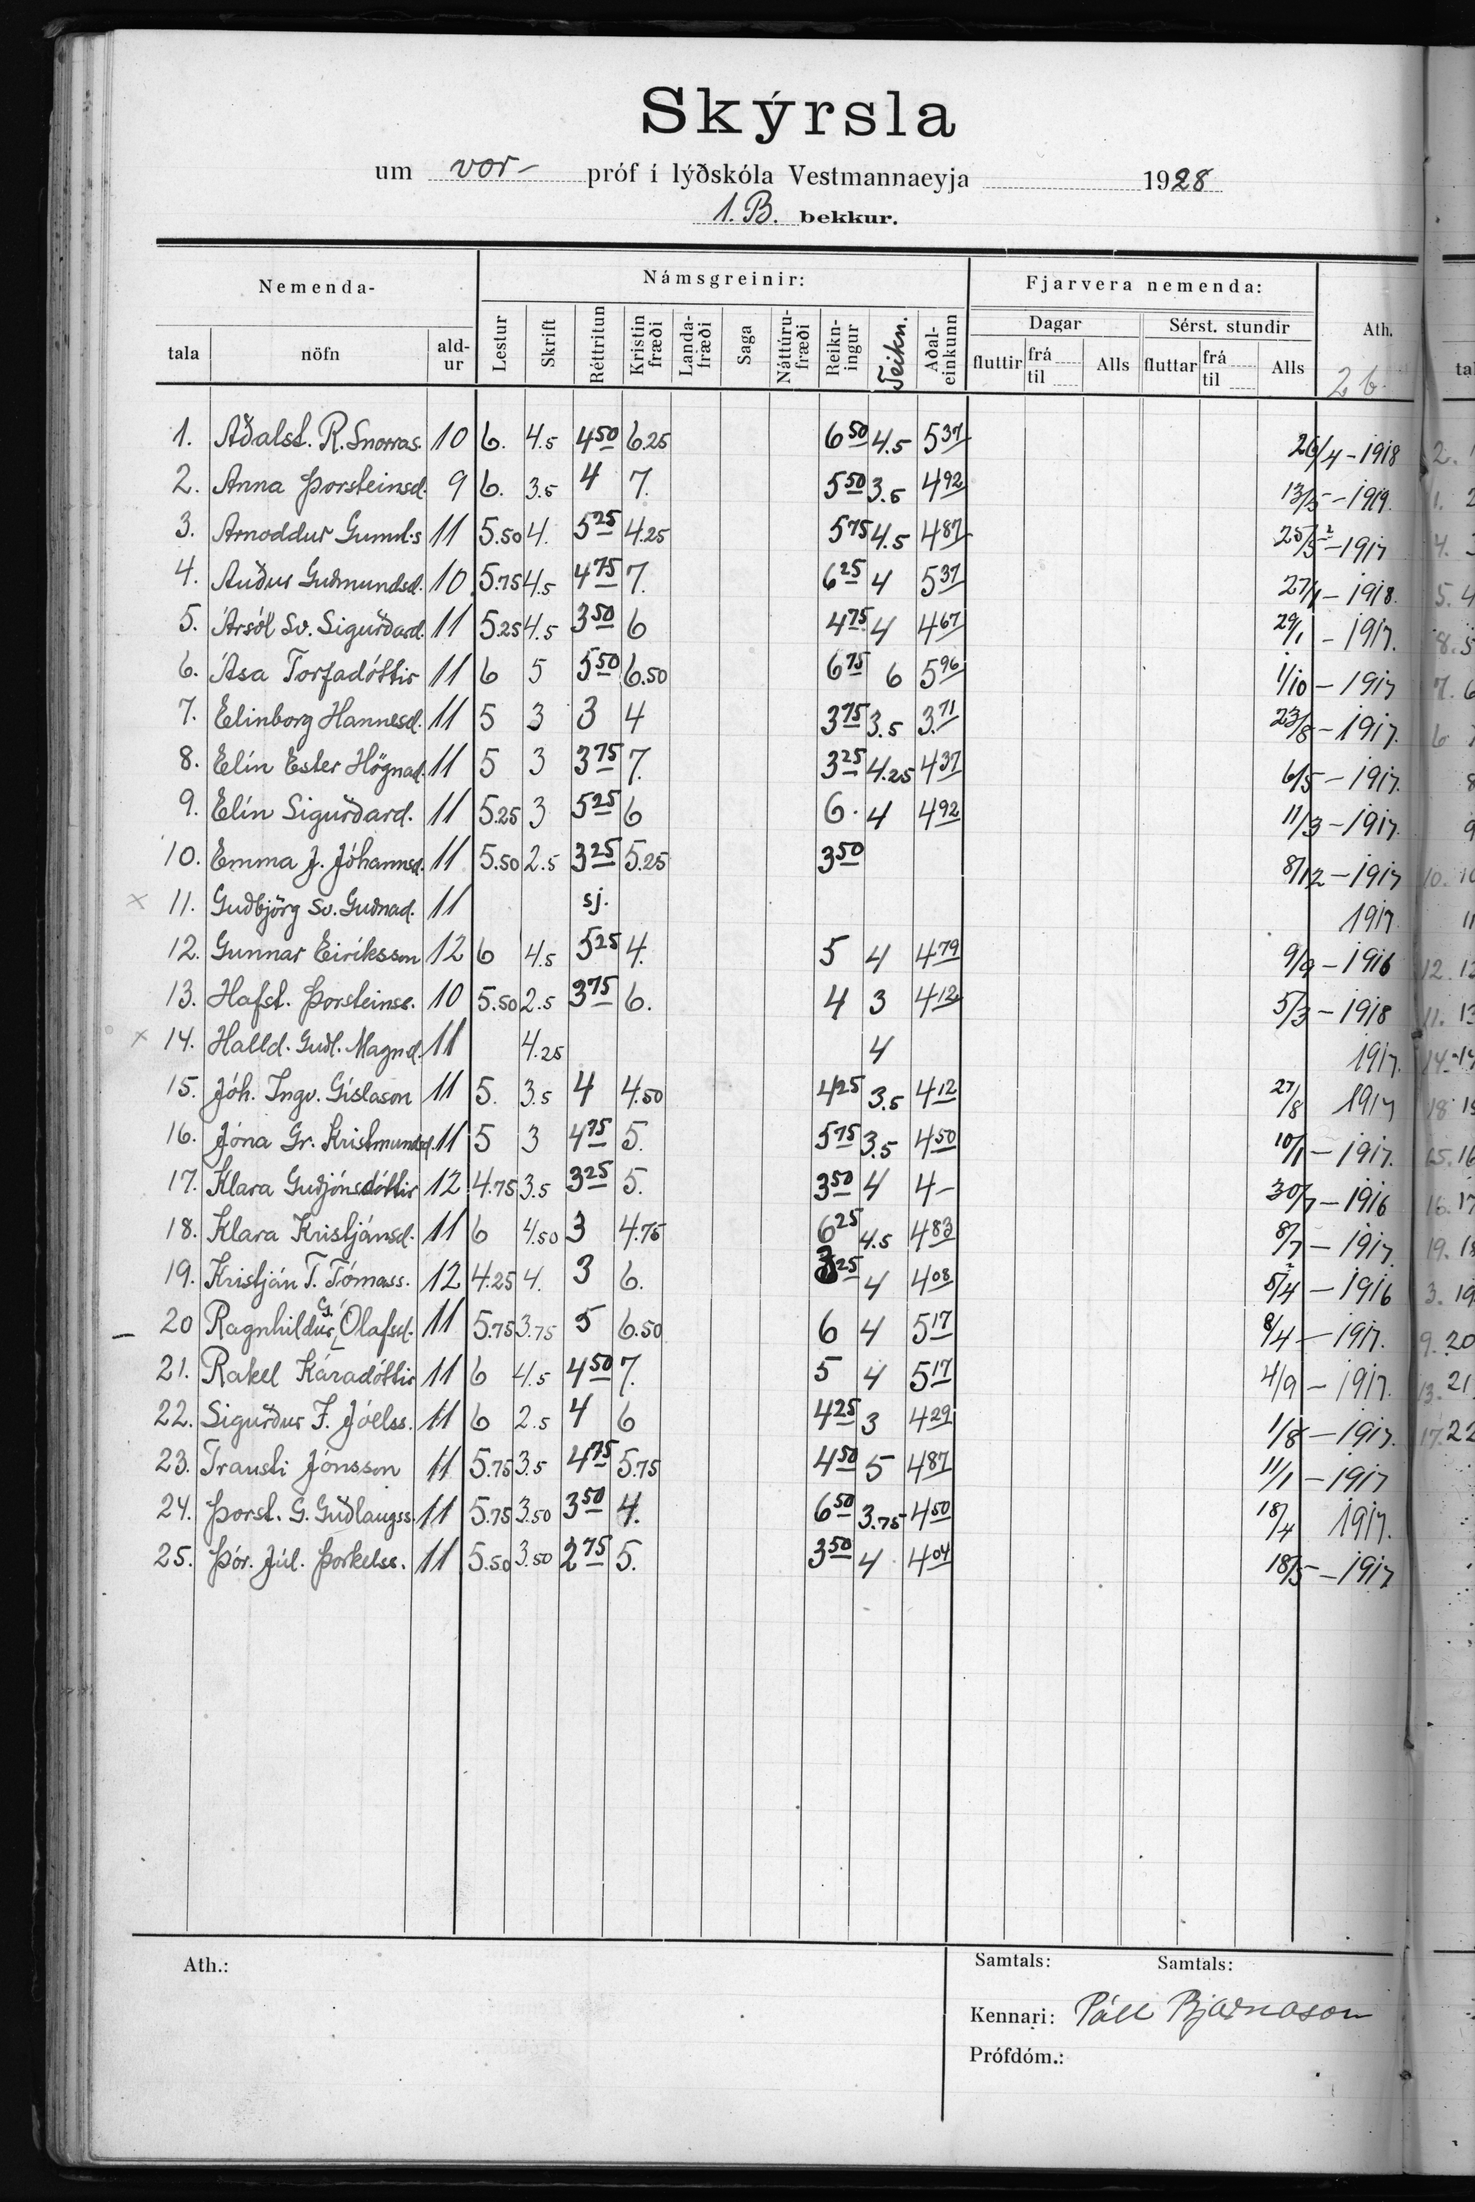 Skýrsla
um vor- próf í lýðskóla Vestmannaeyja 1928
1. B. bekkur.
Nemenda- Námsgreinir: Fjarvera nemenda: Ath.
tala nöfn ald-ur Lestur Skrift Réttritun Kristin fræði Landa-fræði Saga Náttúru-fræði Reikn-ingur Teikn. Aðal-einkunn Dagar Sérst. stundir
fluttir frá til Alls fluttar frá til Alls 2 b
1. Aðalst. R. Snorras. 10 6. 4.5 4 50 6.25 6 50 4.5 5 37 26/4 - 1918
2. Anna Þorsteinsd. 9 6. 3.5 4 7. 5 50 3.5 4 92 13/5 - 1919.
3. Arnoddur Gunnl.s 11 5.50 4. 5 25 4.25 5 75 4.5 4 87 - 1917
4. Auður Guðmundsd. 10 5.75 4.5 4 75 7. 6 25 4 5 37 27/1 - 1918.
5. Ársól Sv. Sigurðard. 11 5.25 4.5 3 50 6 4 75 4 4 67 29/1 - 1917.
6. Ása Torfadóttir 11 6 5 5 50 6.50 6 75 6 5 96 1/10 - 1917
7. Elinborg Hannesd. 11 5 3 3 4 3 75 3.5 3.71 23/8 - 1917.
8. Elín Ester Högnad. 11 5 3 3 75 7. 3 25 4.25 4 37 6/5 - 1917.
9. Elín Sigurðard. 11 5.25 3 5 25 6 6. 4 4 92 11/3 - 1917.
10. Emma J. Jóhannsd. 11 5.50 2.5 3 25 5.25 3 50 8/12 - 1917
x 11. Guðbjörg Sv. Guðnad. 11 sj. 1917
12. Gunnar Eiríksson 12 6 4.5 5 25 4. 5 4 4 79 9/9 - 1916
13. Hafst. Þorsteinss. 10 5.50 2.5 3 75 6. 4 3 4 12 5/3 - 1918
x 14. Halld. Guðl. Magnd. 11 4.25 4 1917.
15. Jóh. Ingv. Gíslason 11 5. 3.5 4 4.50 4 25 3.5 4 12 27/8 1917
16. Jóna Gr. Kristmundsd. 11 5 3 4 75 5. 5 75 3.5 4 50 10/1 - 1917.
17. Klara Guðjónsdóttir 12 4.75 3.5 3 25 5. 3 50 4 4 - 30/7 - 1916
18. Klara Kristjánsd. 11 6 4.50 3 4.75 6 25 4.5 4 83 8/7 - 1917
19. Kristján T. Tómass. 12 4.25 4. 3 6. 3 25 4 4 08 5/4 - 1916
20 Ragnhildur G. Ólafsd. 11 5.75 3.75 5 6.50 6 4 5 17 8/4 - 1917.
21. Rakel Káradóttir 11 6 4.5 4 50 7. 5 4 5 17 4/9 - 1917.
22. Sigurður F. Jóelss. 11 6 2.5 4 6 4 25 3 4 29 1/8 - 1917.
23. Trausti Jónsson 11 5.75 3.5 4 75 5.75 4 50 5 4 87 11/1 - 1917
24. Þorst. G. Guðlaugss. 11 5.75 3.50 3 50 4. 6 50 3.75 4 50 18/4 1917.
25. Þór. Júl. Þorkelss. 11 5.50 3.50 2 75 5. 3 50 4 4 04 18/5 - 1917
Ath.: Samtals: Samtals:
Kennari: Páll Bjarnason
Prófdóm.: